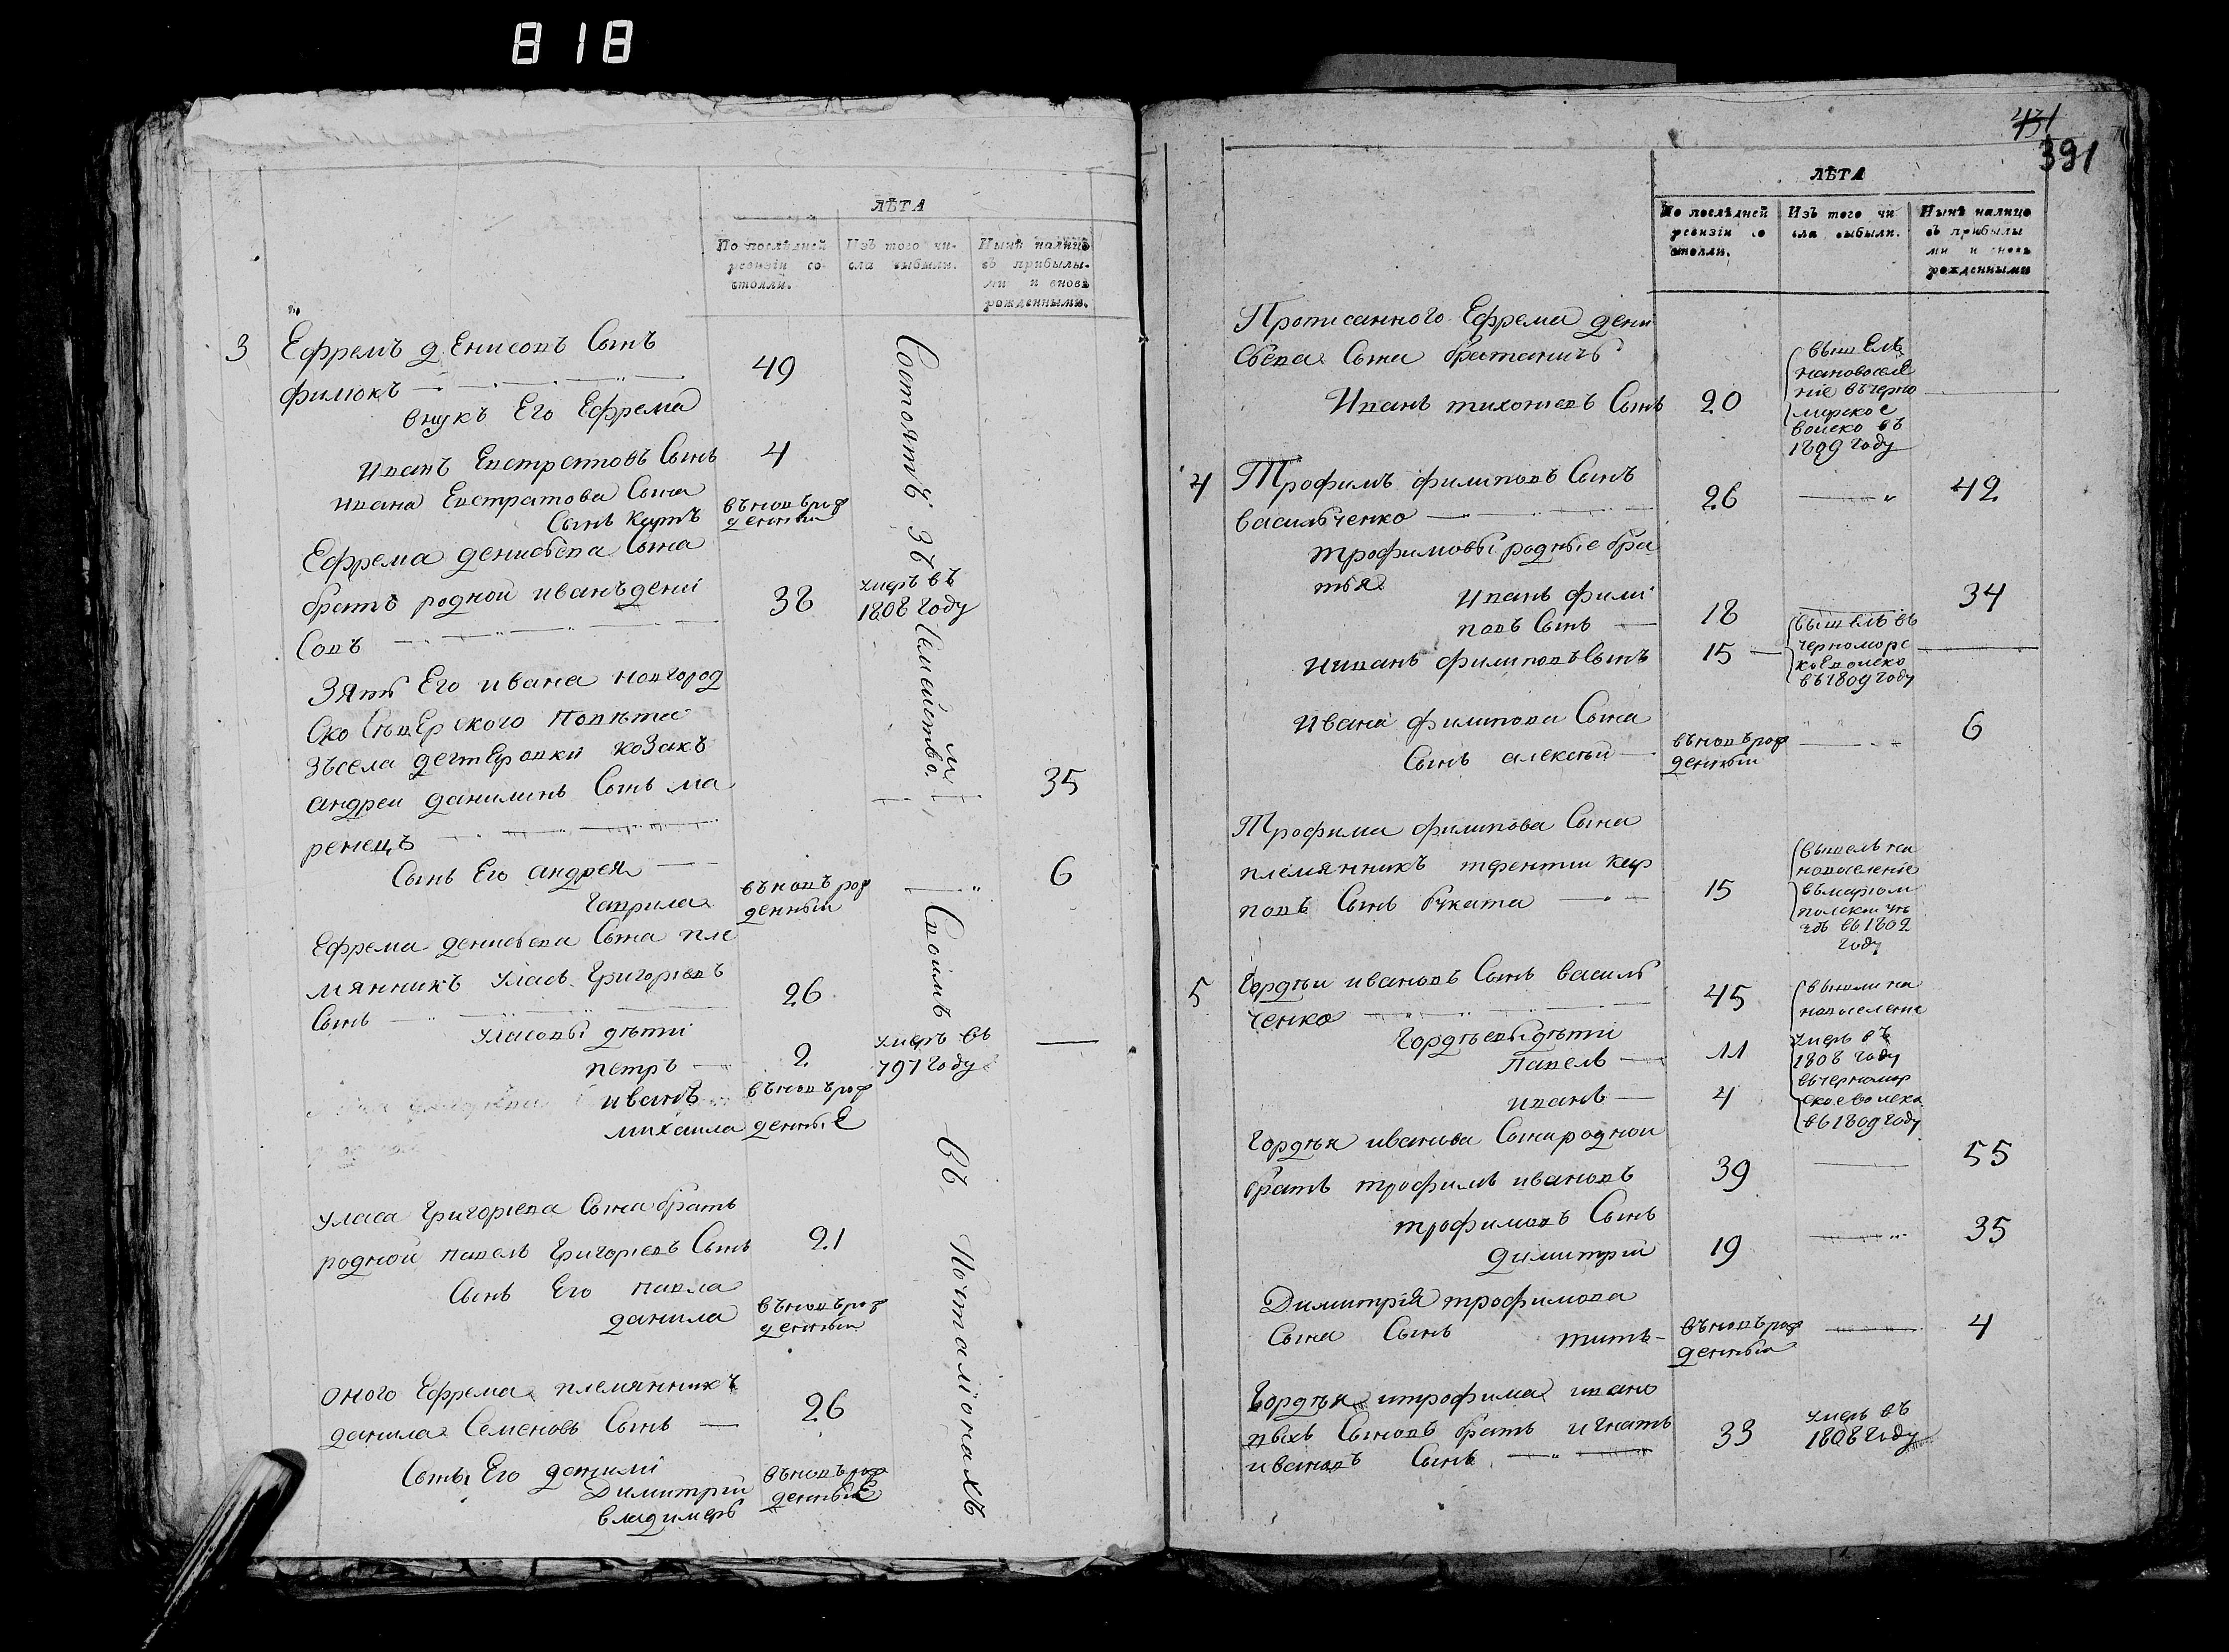 818
ЛѢТА
По послѣдней ревизіи состояли.
Изъ того числа выбыли.
Нынѣ налицо съ прибылыми и вновь рожденными.
3 Ефремъ денисовъ Сынъ 49
филюкъ
внукъ Его Ефрема
иванъ Евстратовъ Сынъ 4
ивана Евстратова Сына
Сынъ въновърож
денный
Ефрема денисьева Сына
братъ родной иванъ дени 38 умеръ въ
1808 году
Совъ
Зять Его ивана новгород
Ско Сѣверского повѣта
зъсела дегтеровки козакъ
андреи данилинъ Сынъ ма 35
ренецъ
Сынъ Его андрея 6
гаврила въновърож
денныи
Ефрема денисьева Сына пле
мянникъ Уласъ Григорьевъ 26
Сынъ
Уласовы дѣти
петръ 2 умеръ въ
797 году
иванъ въновърож
михаила денныЕ
Уласа Григорьева Сына братъ
родной павелъ Григорьевъ Сынъ 21
Сынъ Его павла
данила въновърож
денныи
оного Ефрема племянникъ
данила Семеновъ Сынъ 26
Сыны Его данилы
Димитрии въновърож
владимеръ денныЕ
Состоятъ зъ Семействомъ Своимъ въ Почталіонахъ
431
391
ЛѢТА
По послѣдней ревизіи состояли.
Изъ того числа выбыли.
Нынѣ налицо съ прибылыми и вновь рожденными
Прописанного Ефрема дени
Сьева Сына братаничъ
Иванъ тихоновъ Сынъ 20
вышелъ
нановоселе
ніе въчерно
мирское
воиско въ
1809 году
4 Трофимъ филиповъ Сынъ 26 42
васильченко
трофимовы родные бра
тья
Иванъ фили
повъ Сынъ 18 34
ииванъ филиповъ Сынъ 15
вышелъ въ
черноморс
коЕвоиско
въ1809 году
Ивана филипова Сына
Сынъ алексѣй въновърож
денныи 6
Трофима филипова Сына
племянникъ терентии кар
повъ Сынъ буката 15
вышелъ на
новоселеніе
въмариом
полскои уѣ
здъ въ1802
году
5 Гордѣи ивановъ Сынъ василь 45
ченко
вышли на
новоселение
Гордѣевы дѣти
павелъ 11 умеръ въ
1808 году
иванъ 4 въчерномор
ское воиско
въ1809 году
Гордѣя иванова Сына родной
братъ трофимъ ивановъ 39 55
трофимовъ Сынъ
димитрии 19 35
Димитрия трофимова
Сына Сынъ титъ въновърож
денныи 4
Гордѣя итрофима ивано
выхъ Сыновъ братъ игнатъ 33 умеръ въ
1808 году
ивановъ Сынъ